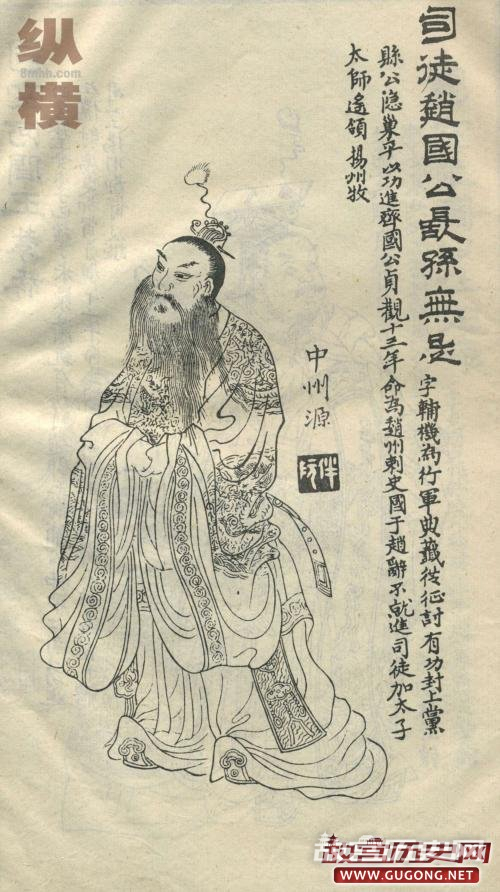 司徒趙國公長孫無忌
字輔機為行軍典籤從征討有功封上黨
縣公隐巢平以功進齊國公貞觀十三年命為趙州刺史國于趙辭不就進司徒加太子
太師遙領揚州牧
中州源
伴阮
纵横
8mhh.com
故宫历史网
WWW.GUGONG.NET